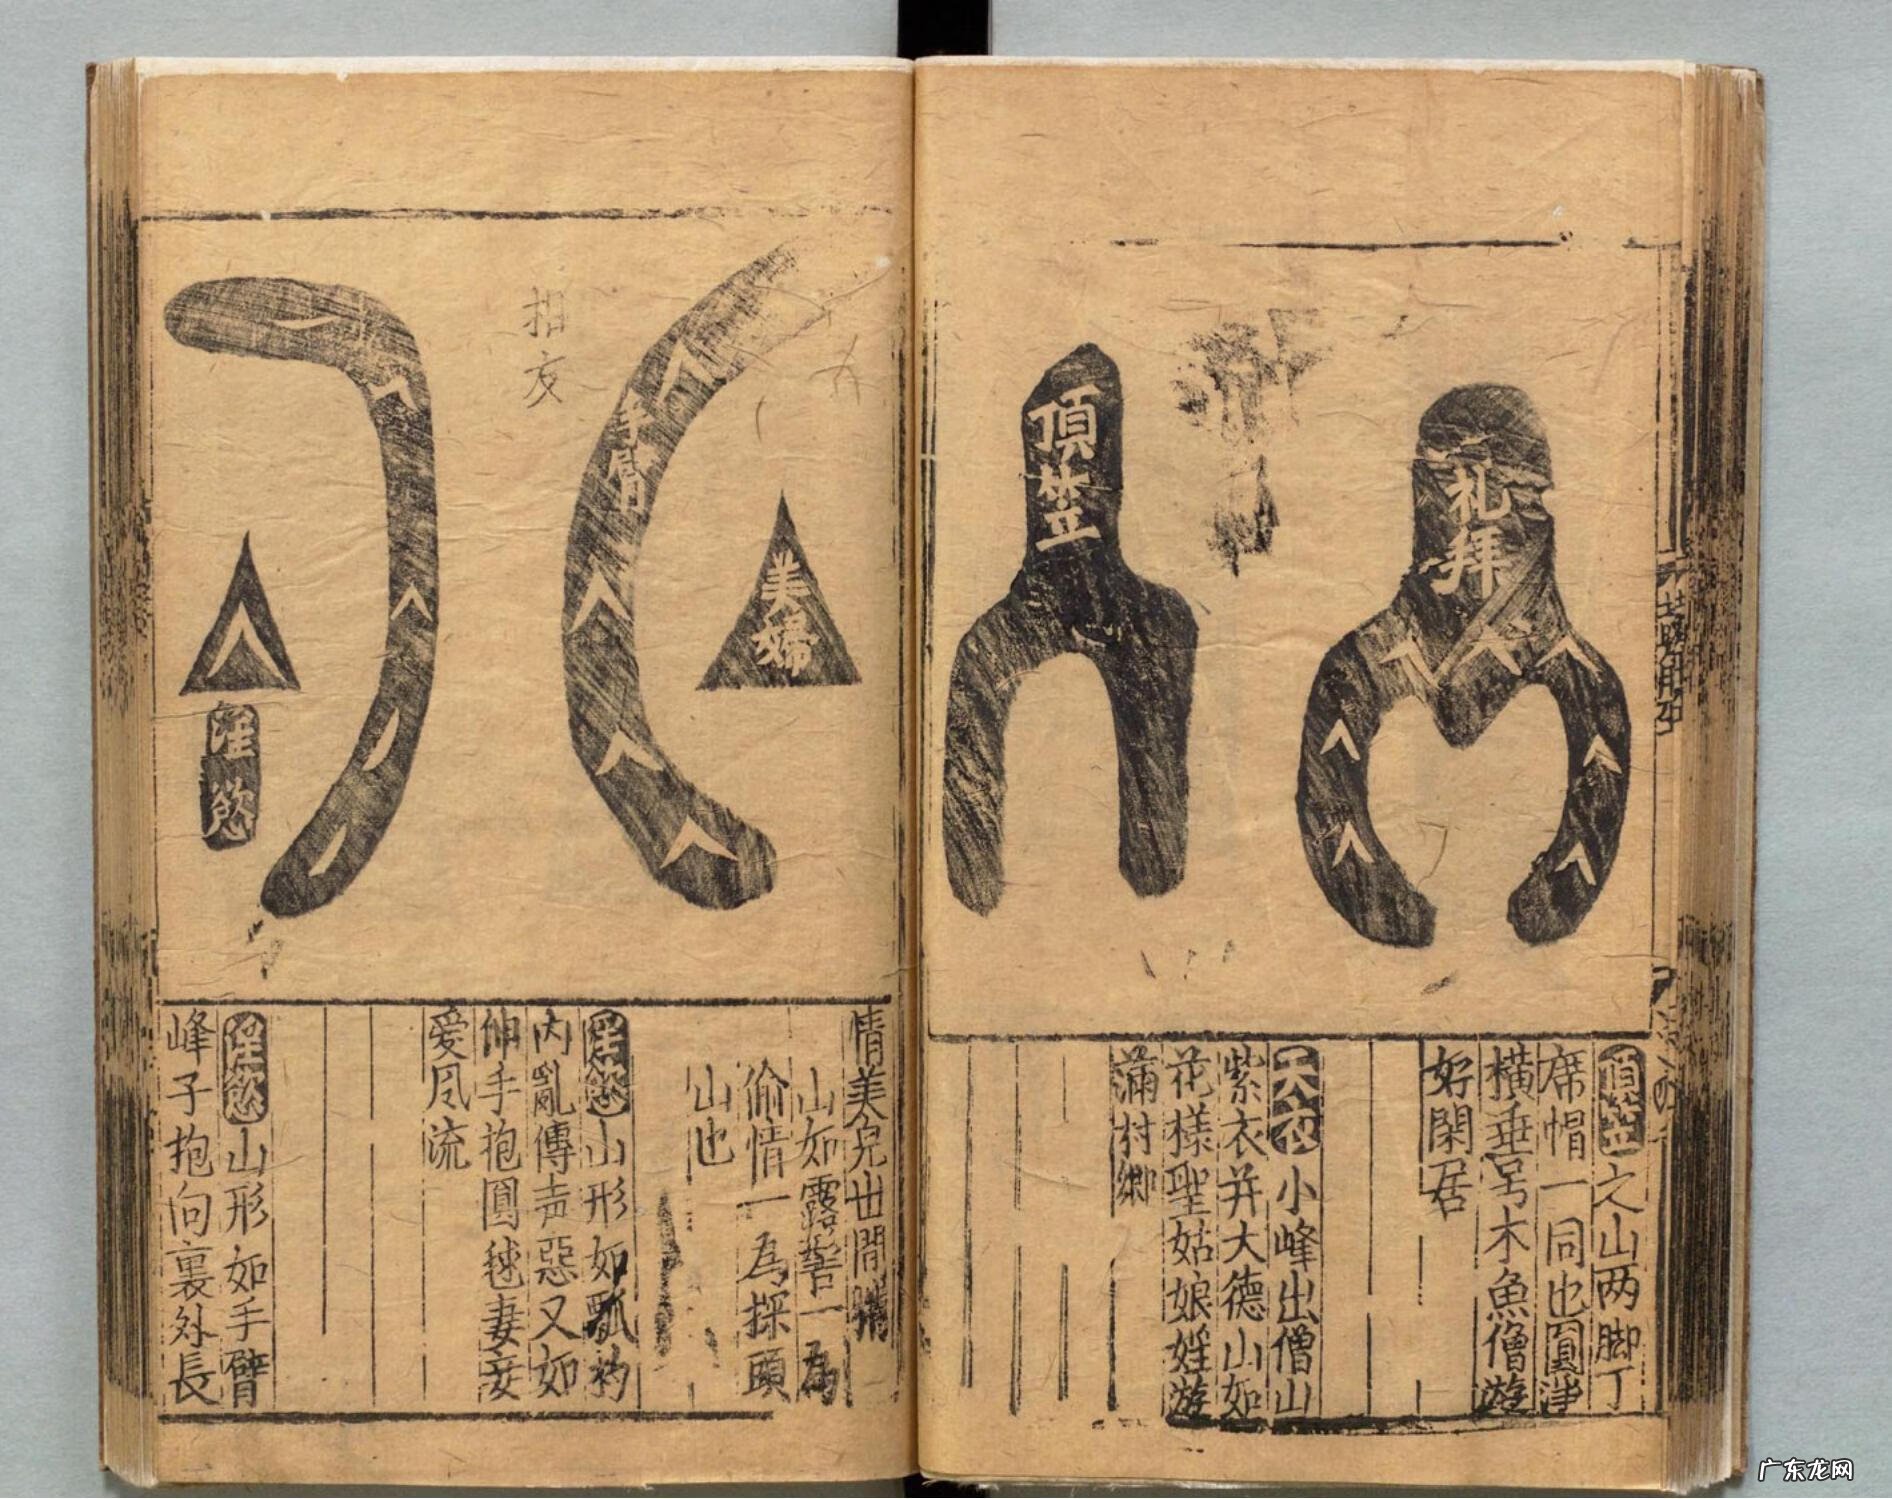 礼拜
頂笠
頂笠之山两脚丁
席帽一同也圓淨
橫垂号木魚僧遊
好閑居
天衣小峰出僧山
紫衣并大德山如
花樣聖姑娘婬遊
滿村鄉
美婦
手臂
淫慾
情美皃世間
山如露 一為
偷情一為探頭
山也
淫慾山形如瓢杓
内亂傳声惡又如
伸手抱圓毬妻妾
爱风流
淫慾山形如手臂
峰子抱向裏外長
广东龙网